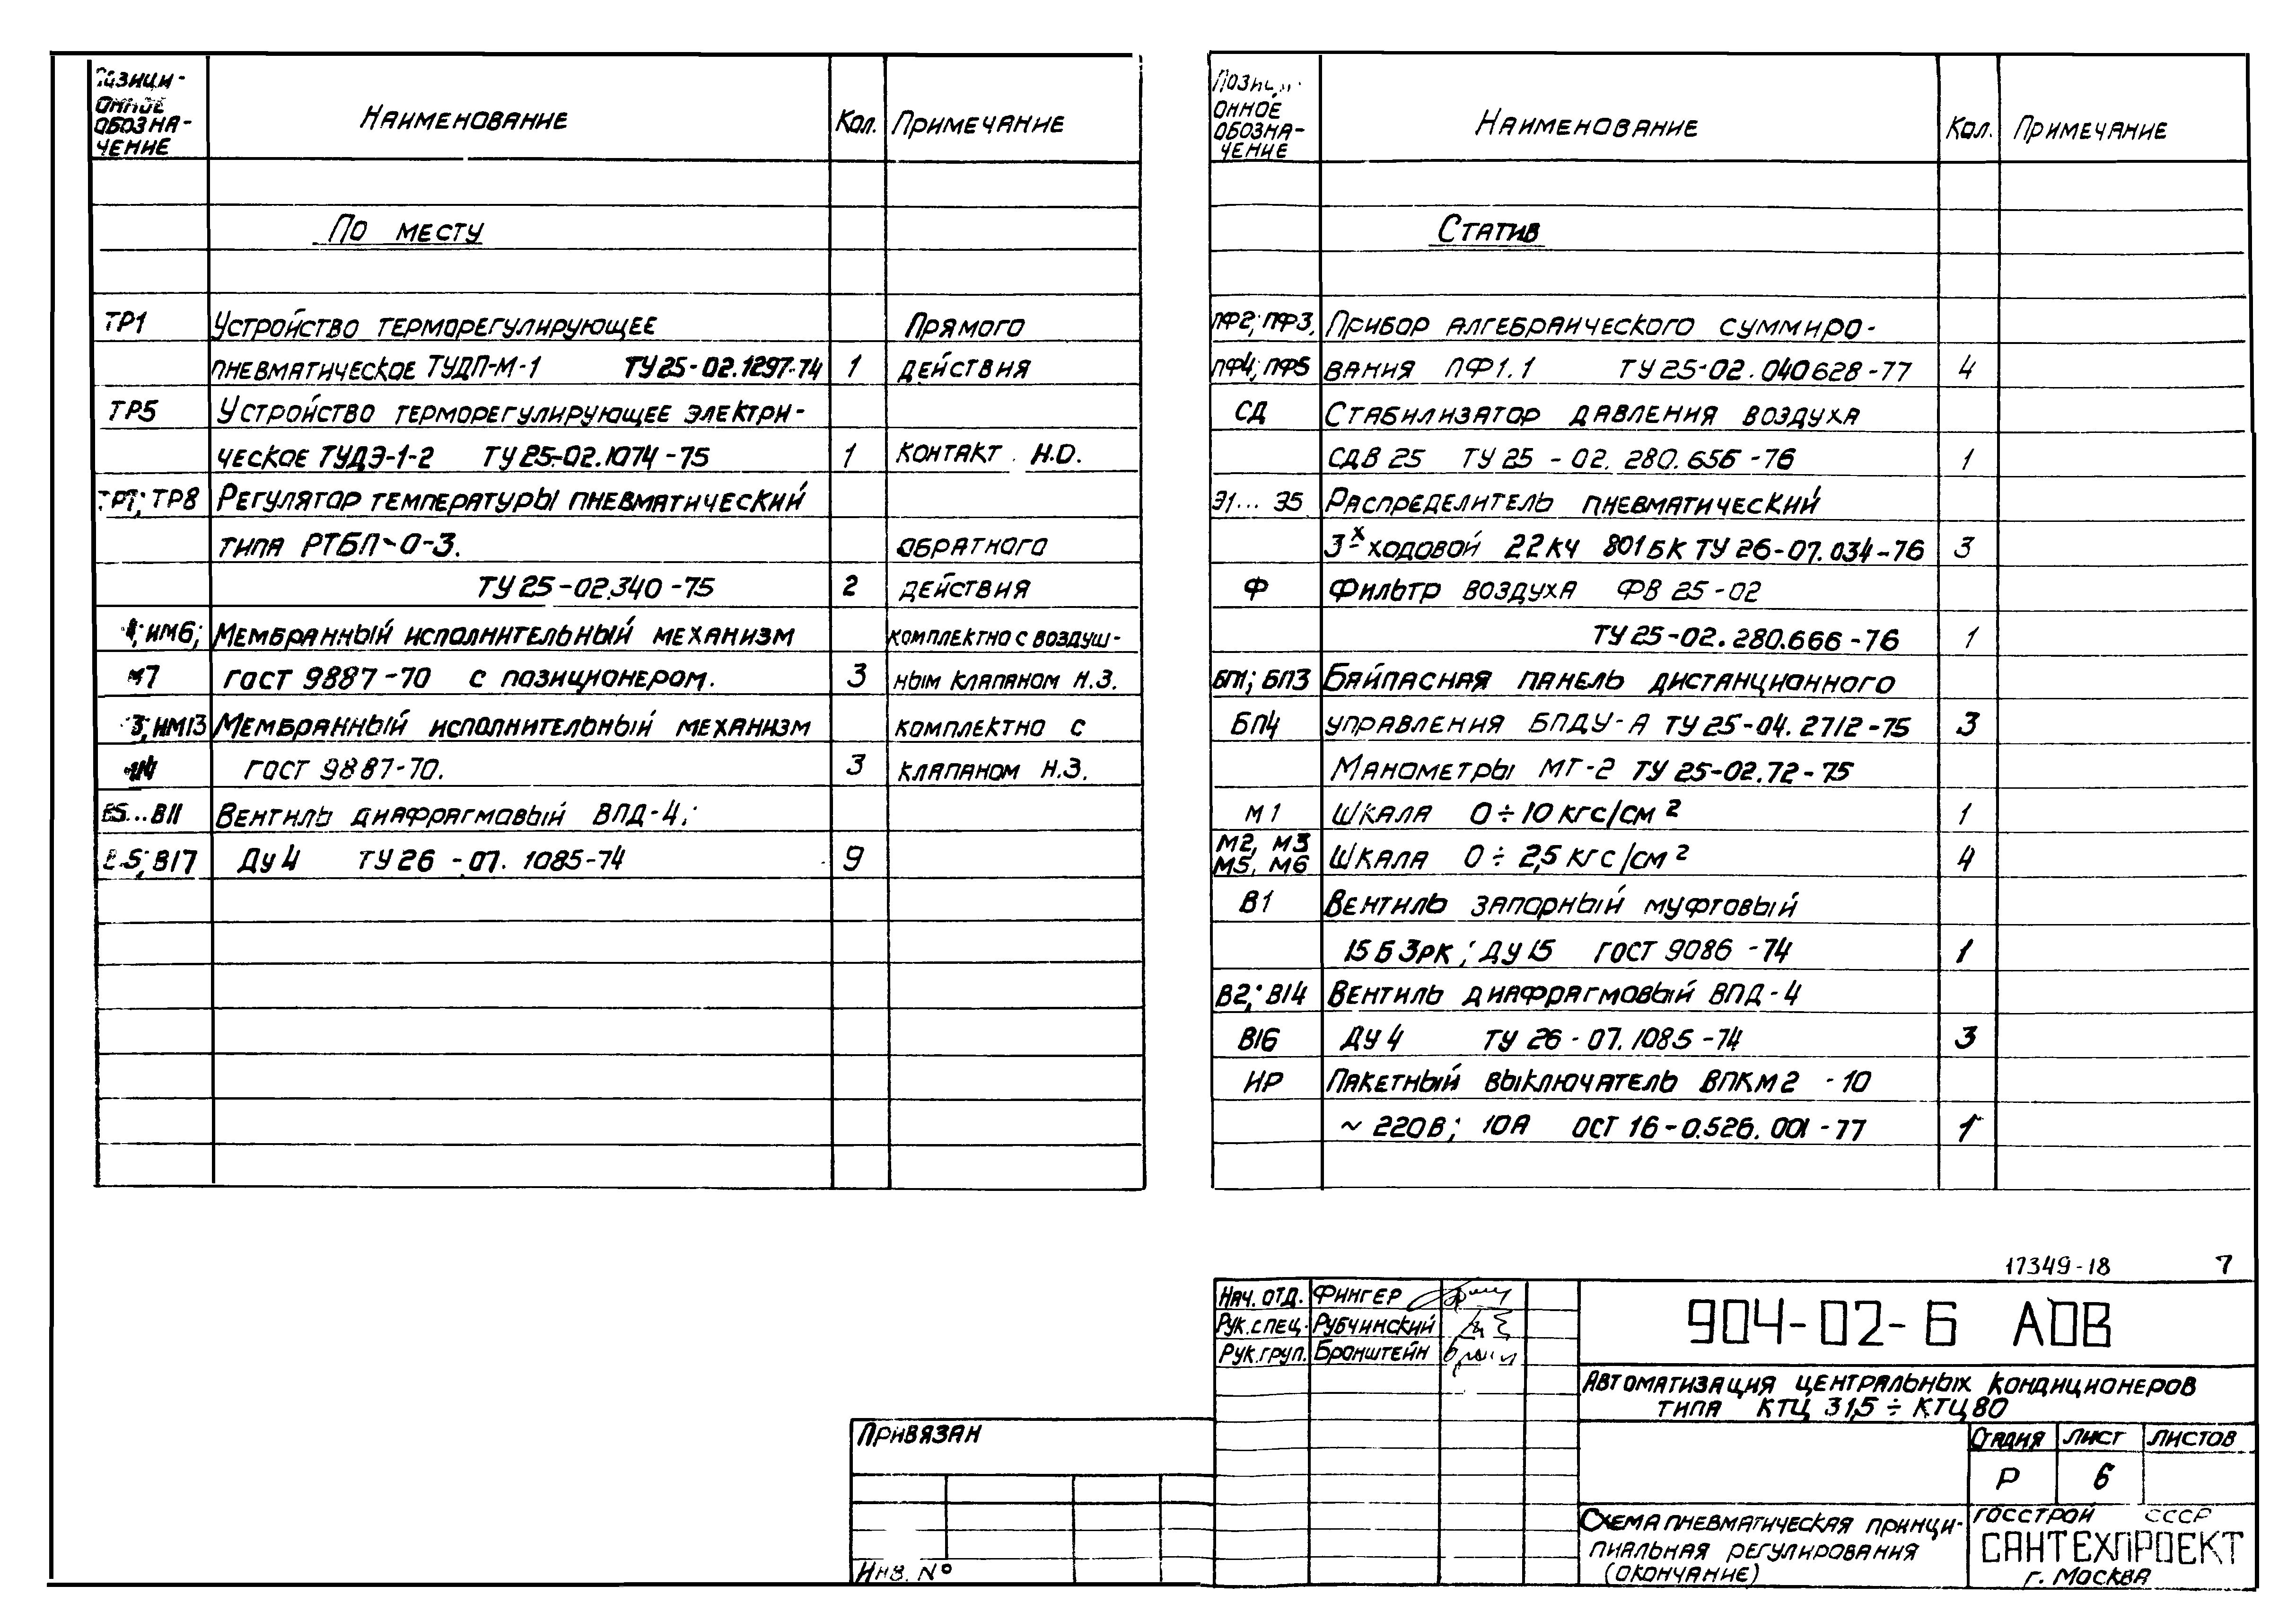 Позици-
онное
обозна-
чение
Наименование
Кол.
Примечание
По месту
ТР1 Устройство терморегулирующее Прямого
пневматическое ТУДП-М-1 ТУ25-02.1297-74 1 действия
ТР5 Устройство терморегулирующее электри-
ческое ТУДЭ-1-2 ТУ25-02.1074-75 1 контакт Н.О.
ТР7; ТР8 Регулятор температуры пневматический
типа РТБП-О-3. обратного
ТУ25-02.340-75 2 действия
ИМ6; Мембранный исполнительный механизм комплектно с воздуш-
ГОСТ 9887-70 с позиционером. 3 ным клапаном Н.З.
ИМ13 Мембранный исполнительный механизм комплектно с
ГОСТ 9887-70. 3 клапаном Н.З.
В5...В11 Вентиль диафрагмовый ВПД-4;
В17 Ду 4 ТУ26-07.1085-74 9
Позици-
онное
обозна-
чение
Наименование
Кол.
Примечание
Статив
ПФ2; ПФ3, Прибор алгебраического суммиро-
ПФ4; ПФ5 вания ПФ1.1 ТУ25-02.040628-77 4
СД Стабилизатор давления воздуха
СДВ 25 ТУ25-02.280.656-76 1
Э1... Э5 Распределитель пневматический
3х ходовой 22кч 801бк ТУ26-07.034-76 3
Ф Фильтр воздуха ФВ 25-02
ТУ25-02.280.666-76 1
БП1; БП3 Байпасная панель дистанционного
БП4 управления БПДУ-А ТУ25-04.2712-75 3
Манометры МТ-2 ТУ25-02.72-75
М1 Шкала 0÷10 кгс/см²  1
М2, М3
М5, М6 Шкала 0÷2,5 кгс/см² 4
В1 Вентиль запорный муфтовый
15Б3рк; Ду15 ГОСТ 9086-74 1
В2; В14 Вентиль диафрагмовый ВПД-4
В16 Ду 4 ТУ26-07.1085-74 3
ИР Пакетный выключатель ВПКМ2-10
~220В; 10А ОСТ 16-0.526.001-77 1
17349-18 7
Нач. отд. Фингер
Рук. спец. Рубчинский
Рук. груп. Бронштейн
904-02-6 АОВ
Автоматизация центральных кондиционеров
типа КТЦ 31,5÷КТЦ80
Стадия Лист Листов
Р 6
Схема пневматическая принци-
пиальная регулирования
(окончание)
Госстрой СССР
САНТЕХПРОЕКТ
г. Москва
Привязан
Инв. №